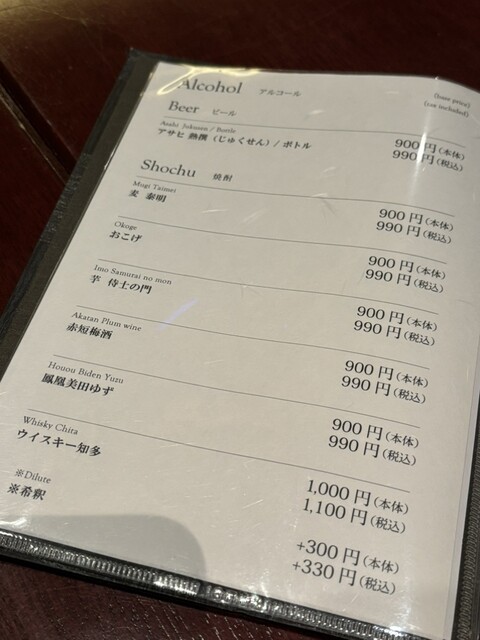 Alcohol アルコール (base price)
(tax included)
Beer ビール
Asahi Jukusen / Bottle
アサヒ 熱撰（じゅくせん）/ ボトル 900 円（本体）
990 円（税込）
Shochu 焼酎
Mugi Taimei
麦 泰明 900 円（本体）
990 円（税込）
Okoge
おこげ 900 円（本体）
990 円（税込）
Imo Samurai no mon
芋 侍士の門 900 円（本体）
990 円（税込）
Akatan Plum wine
赤短梅酒 900 円（本体）
990 円（税込）
Houou Biden Yuzu
鳳凰美田ゆず 900 円（本体）
990 円（税込）
Whisky Chita
ウイスキー知多 1,000 円（本体）
1,100 円（税込）
※Dilute
※希釈 +300 円（本体）
+330 円（税込）